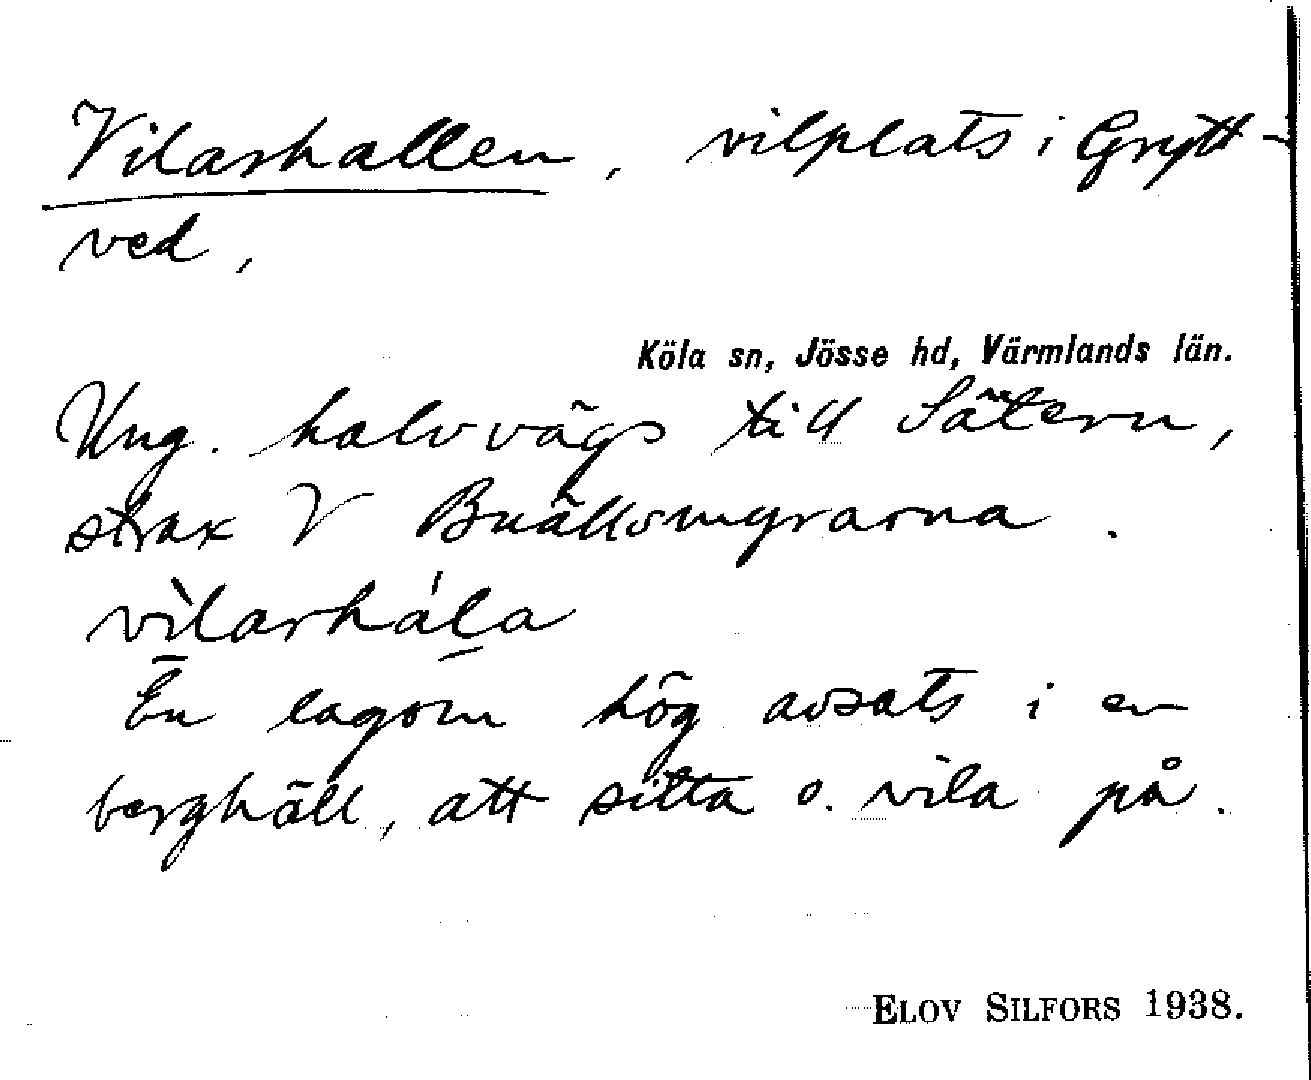 Vilarhallen, vilplats i Grytt-
ved,
Köla sn, Jösse hd, Värmlands län.
Ung. halvvägs till Sätern,
strax V Buällsmyrarna.
vìlarhála
En lagom hög avsats i en
berghäll, att sitta o. vila på.
ELOV SILFORS 1938.